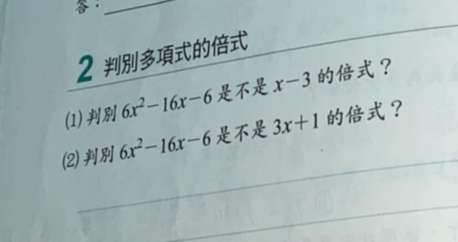 答：
2 判別多項式的倍式
(1) 判別 6x²−16x−6 是不是 x−3 的倍式？
(2) 判別 6x²−16x−6 是不是 3x+1 的倍式？